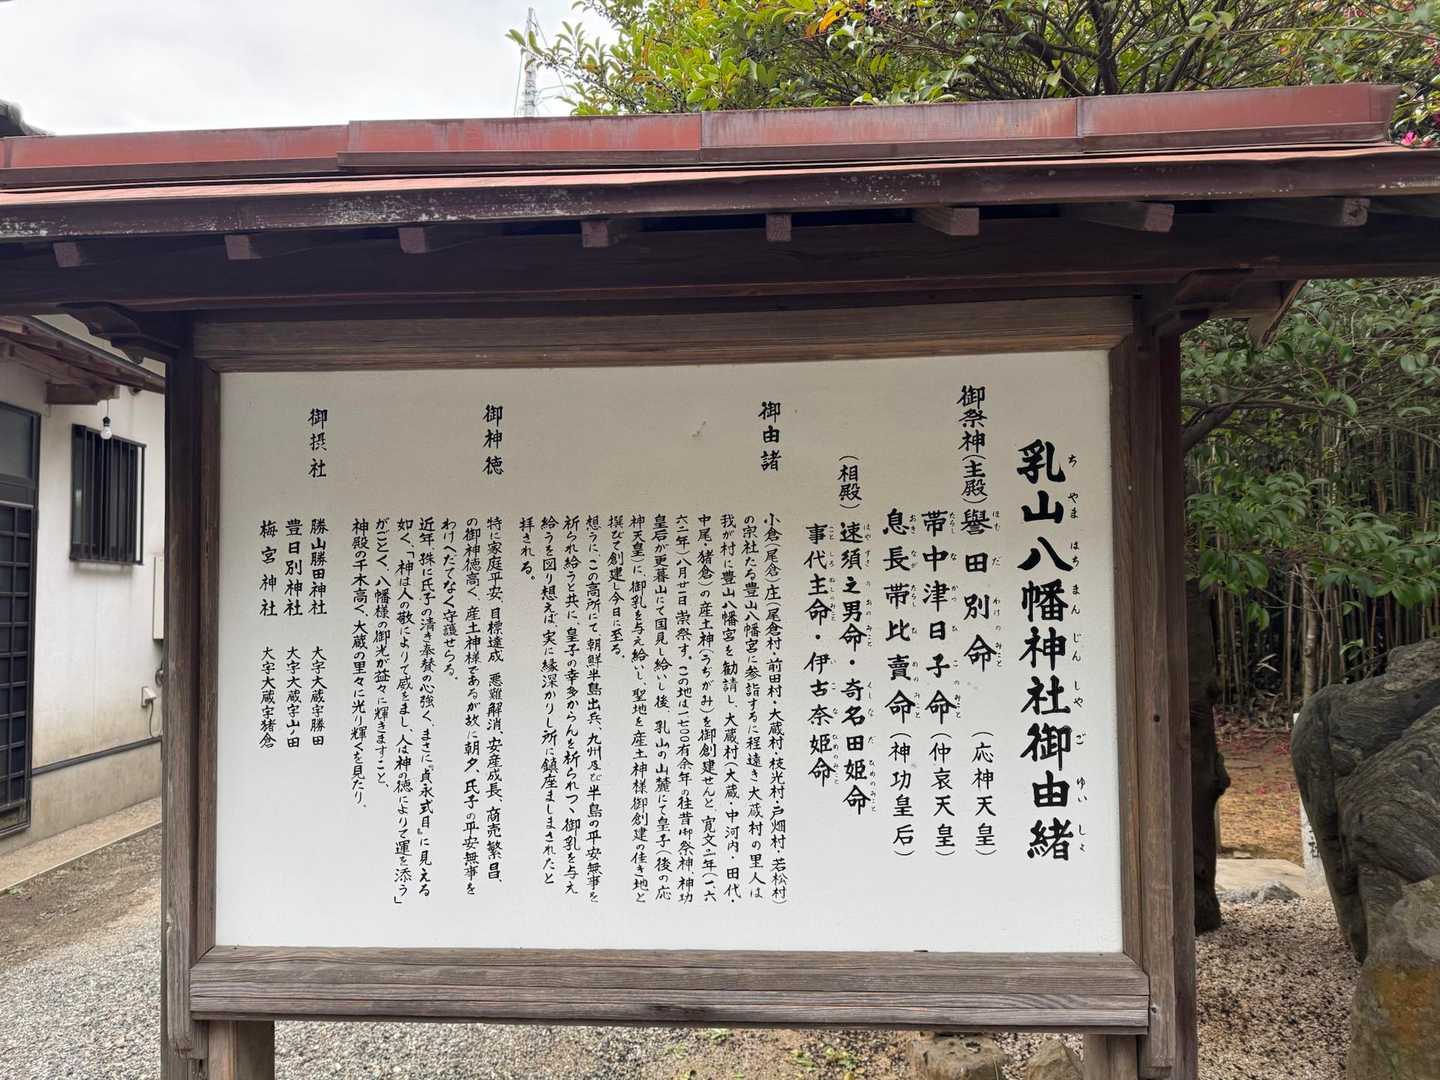 乳山八幡神社御由緒
ちやまはちまんじんしやごゆいしょ
御祭神(主殿)譽田別命(応神天皇)
ほむだわけのみこと
帯中津日子命(仲哀天皇)
たらしなかつひこのみこと
息長帯比賣命(神功皇后)
おきながたらしひめのみこと
(相殿)速須之男命・奇名田姫命
はやすさのおのみこと くしなだひめのみこと
事代主命・伊古奈姫命
ことしろぬしのみこと いこなひめのみこと
御由諸
小倉(尾倉)庄(尾倉村・前田村・大蔵村・枝光村・戸畑村・若松村)
の宗社たる豊山八幡宮に参詣するに程遠き大蔵村の里人は
我が村に豊山八幡宮を勧請し、大蔵村(大蔵・中河内・田代・
中尾・猪倉)の産土神(うぢがみ)を御創建せんと、寛文二年(一六
六二年)八月廿一日崇祭す。この地は一七〇〇有余年の往昔御祭神、神功
皇后が更暮山にて国見し給いし後、乳山の山麓にて皇子(後の応
神天皇)に御乳を与え給いし、聖地を産土神様御創建の佳き地と
撰びて創建し今日に至る。
想うに、この高所にて、朝鮮半島出兵、九州及び半島の平安無事を
祈られ給うと共に、皇子の幸多からんを祈られつ、御乳を与え
給うを図り想えば、実に縁深かりし所に鎮座ましまされたと
拝される。
御神徳
特に家庭平安、目標達成、悪難解消、安産成長、商売繁昌、
の御神徳高く、産土神様であるが故に朝夕、氏子の平安無事を
わけへだてなく守護せらる。
近年、殊に氏子の清き奉賛の心強く、まさに『貞永式目』に見える
如く、「神は人の敬によりて威をまし、人は神の徳によりて運を添う」
がごとく、八幡様の御光が益々に輝きますこと、
神殿の千木高く、大蔵の里々に光り輝くを見たり。
御摂社
勝山勝田神社 大字大蔵字勝田
豊日別神社 大字大蔵字山ノ田
梅宮神社 大字大蔵字猪倉